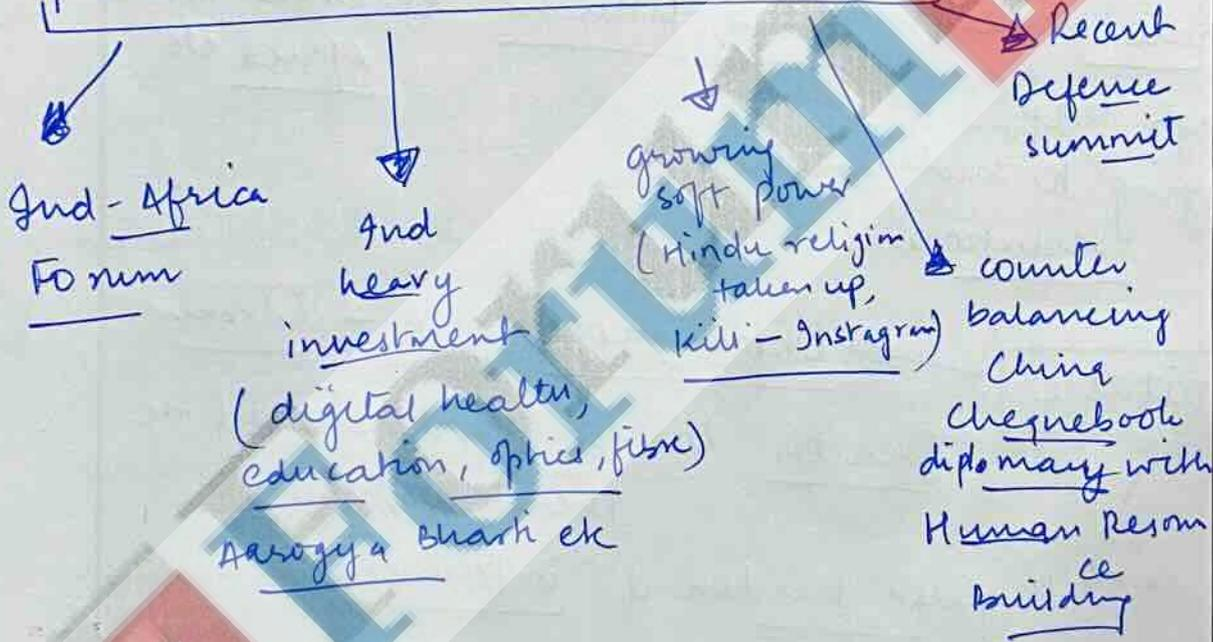 Ind - Africa
Forum
Ind
heavy
investment
(digital health,
education, optics, fibre)
Aarogya Bharti etc
growing
soft power
(Hindu religion
taken up,
Kili - Instagram)
counter
balancing
China
Chequebook
diplomacy with
Human Resour
ce
Building
Recent
Defence
summit
Forum